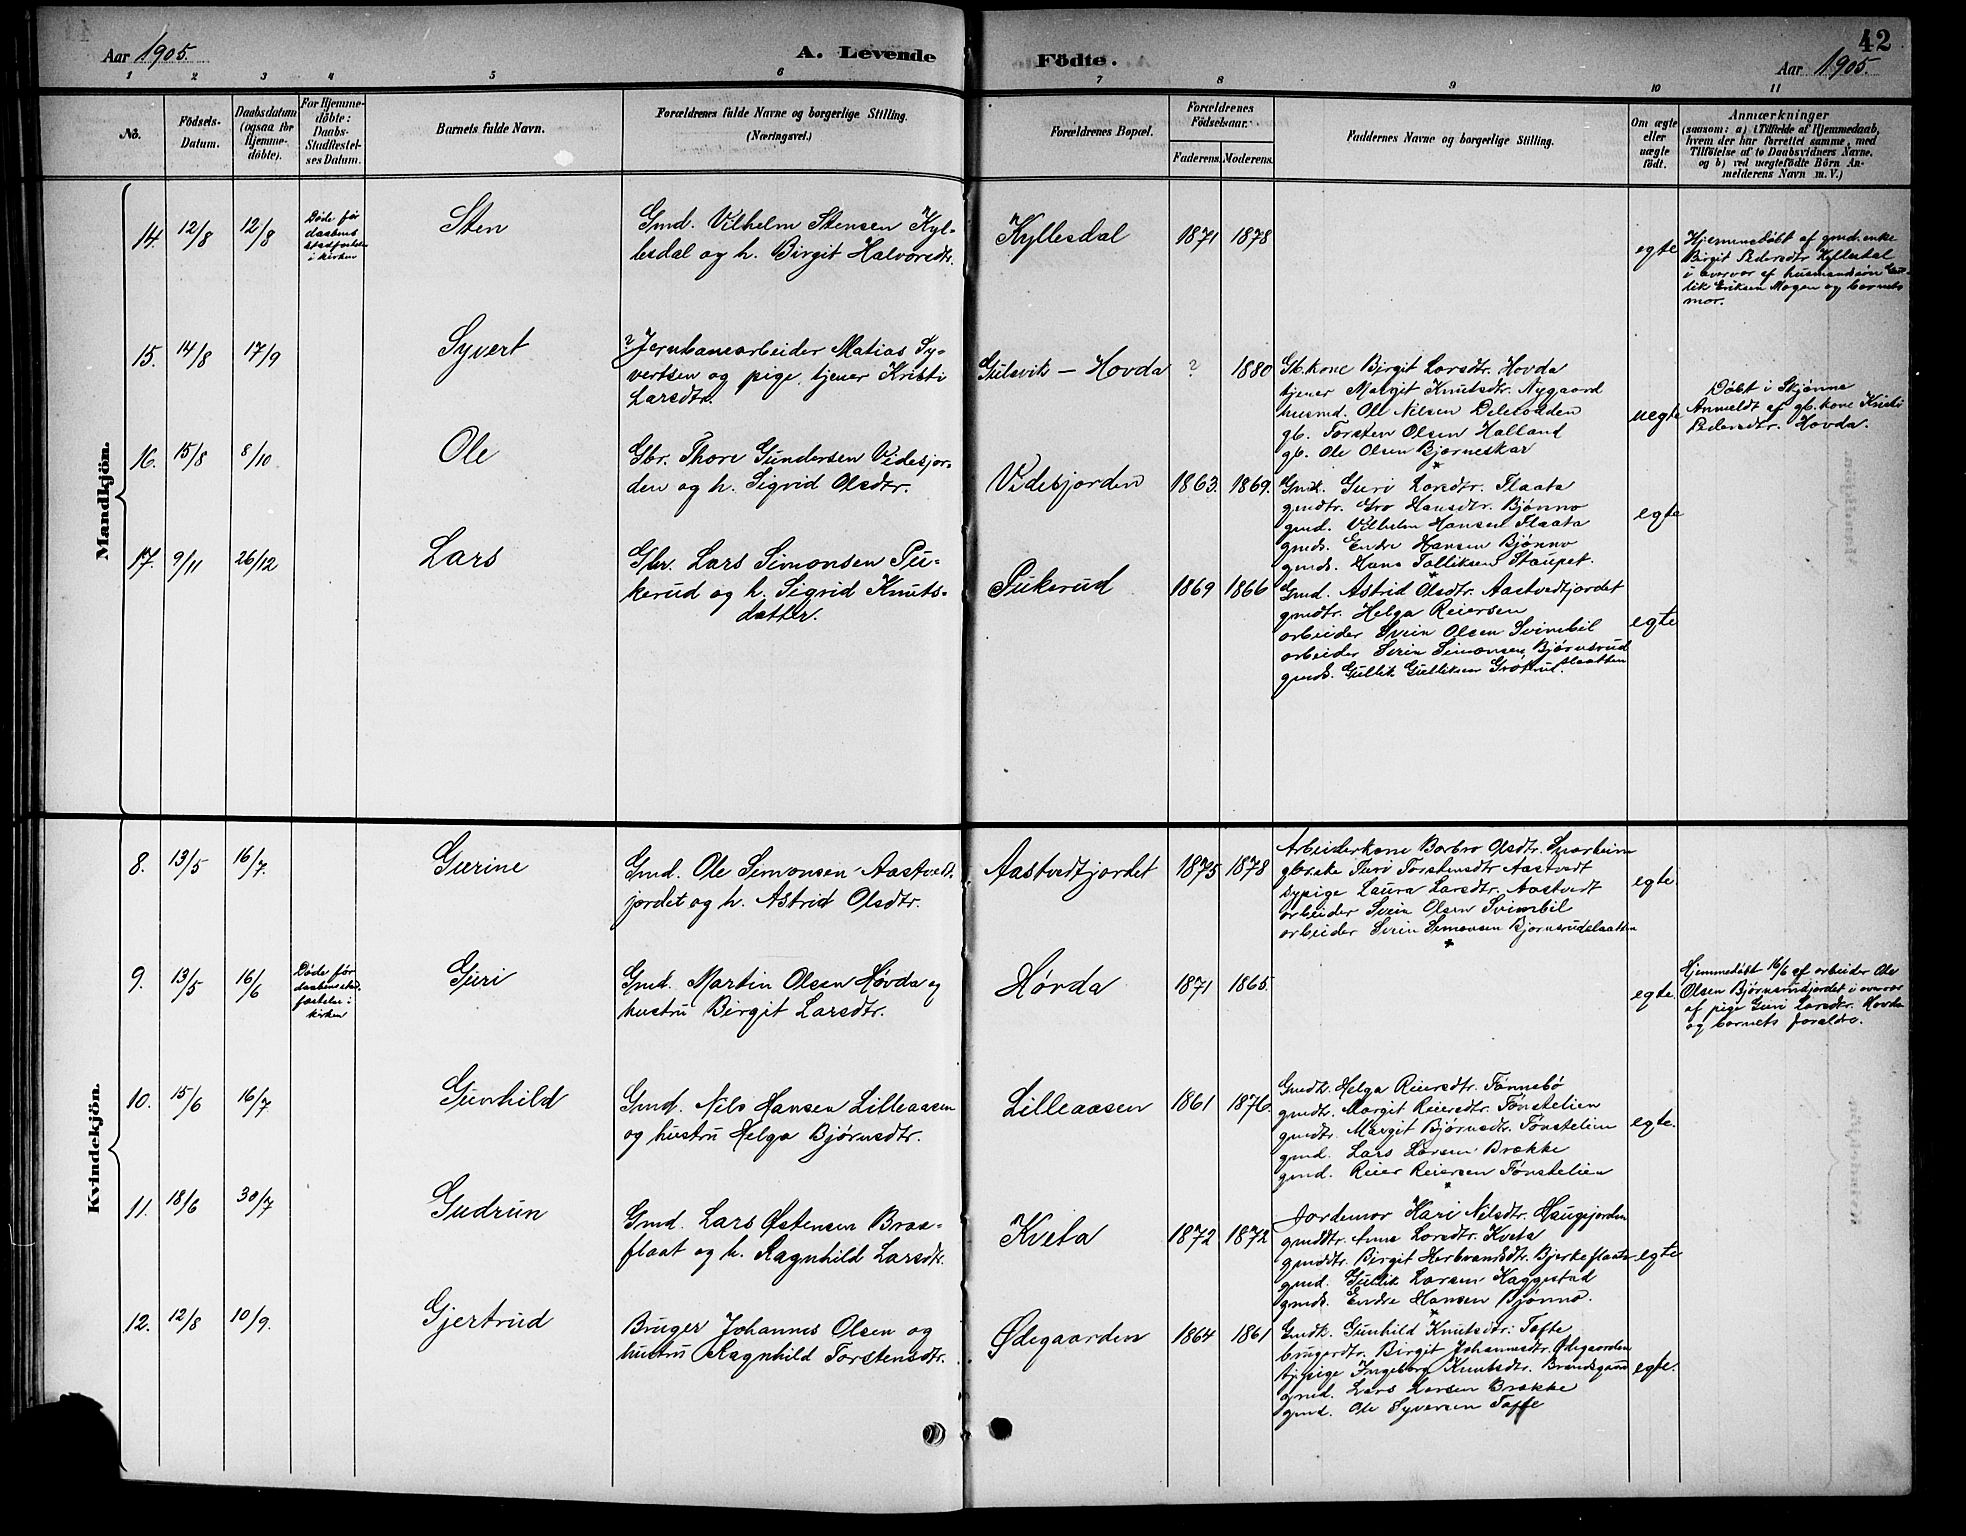 Aar 1905.
A. Levende
Födte.
42
Aar 1905.
1 2 3 4 5 6 7 8 9 10 11
No.
Födsels-
Datum.
Daabsdatum
(ogsaa for
Hjemme-
døbte).
For Hjemme-
döbte:
Daabs-
Stadfæstel-
ses Datum.
Barnets fulde Navn.
Forældrenes fulde Navne og borgerlige Stilling.
(Næringsvei.)
Forældrenes Bopæl.
Forældrenes
Födselsaar.
Faderens. Moderens.
Faddernes Navne og borgerlige Stilling.
Om ægte
eller
uægte
født.
Anmærkninger
(saasom: a) i Tilfælde af Hjemmedaab,
hvem der har forrettet samme, med
Tilföielse af to Daabsvidners Navne,
og b) ved uægtefödte Börn An-
melderens Navn m. V.)
Mandkjön.
14. 12/8 12/8
Døde før
daabens
stadfæstelse
i kirken
Sten
Gmd. Vilhelm Stensen Kyl-
lesdal og h. Birgit Halvorsdtr.
Kyllesdal 1871 1878
egte
Hjemmedøbt af gmd.enke
Birgit Pedersdtr Kyllesdal
i overvær af husmandssøn Gul-
lik Eriksen Mogen og barnets
mor.
15. 14/8 17/9
Syvert
? Jernbanearbeider Matias Sy-
vertsen og pige, tjener Kristi
Larsdtr.
Gulsvik – Hovda ? 1880
Gb.kone Birgit Larsdtr. Hovda
tjener Margit Knutsdtr. Nygaard
husmd. Ole Nilsen
gb. Torsten Olsen Halland
gb. Ole Olsen Bjørneskar
uegte
Døbt i Skjønne
Anmeldt af gb. kone Kristi
Pedersdtr. Hovda.
16. 15/8 8/10
Ole
Gbr. Thore Gundersen Videsjor-
den og h. Sigrid Olsdtr.
Videsjorden 1863. 1869.
Gmdk. Guri Larsdtr. Flaata
gmdtr. Gro Hansdtr. Bjønno
gmd. Vilhelm Hansen Flaata
gmds. Endre Hansen Bjønno
gmds. Hans Staupet.
egte
17. 9/11 26/12
Lars
Gbr. Lars Simonsen Pu-
kerud og h. Sigrid Knuts-
datter.
Pukerud 1869 1866
Gmd. Astrid Olsdtr. Aastvedtjordet
gmdtr. Helga Reiersen
arbeider Svein Olsen Svimbil
arbeider Svein Simonsen Bjørnsrud
slaatten
gmds. Gullik Gulliksen Grøtrud.
egte
Kvindekjön.
8. 13/5 16/7.
Gurine
Gmd. Ole Simonsen Aastved-
jordet og h. Astrid Olsdtr.
Aastvedtjordet 1875 1878
Arbeiderkone Barbro Olsdtr.
Turi Torstensdtr Aastvedt
sypige Laura Larsdtr. Aastvedt
arbeider Svein Olsen Svimbil
arbeider Svein Simonsen Bjørnsrudslaatten
egte
9. 13/5 16/6
Døde før
daabens stad-
fæstelse i
kirken
Guri
Gmd. Martin Olsen Høvda og
hustru Birgit Larsdtr.
Hovda 1871 1865.
egte.
Hjemmedøbt 16/6 af arbeider Ole
Olsen Bjørnsrudjordet i overvær
af pige Guri Larsdtr. Hovda
og barnets forældre.
10. 15/6 16/7
Gunhild
Gmd. Nils Hansen Lilleaasen
og hustru Helga Bjørnsdtr.
Lilleaasen 1861 1876.
Gmdk. Helga Reiersdtr. Tønnebø
gmdtr. Margit Reiersdtr. Tønstelien
gmdtr. Margit Bjørnsdtr. Tønstelien
gmd. Lars Larsen Brække
gmd. Reier Reiersen Tønstelien
egte.
11. 18/6 30/7
Gudrun
Gmd. Lars Østensen Bras-
flaat og h. Ragnhild Larsdtr.
Kveta 1872 1872
Jordemor Kari Nilsdtr. Haugejorden
gmddtr. Anne Larsdtr. Kveta
gmddtr. Birgit Herbrandsdtr. Bjerkeflaata
gmd. Gullik Larsen Kaggestad
gmds. Endre Hansen Bjønno.
egte
12. 12/8 10/9.
Gjertrud
Bruger Johannes Olsen og
hustru Ragnhild Torstensdtr.
Ødegaarden 1864 1861
Gmdk. Gunhild Knutsdtr. Tofte
brugerdtr. Birgit Johannesdtr. Ødegaarden
tj. pige Ingeborg Knutsdtr. Brandsgaard
gmd. Lars Larsen Brække
gmd. Ole Syversen Tofte
egte.